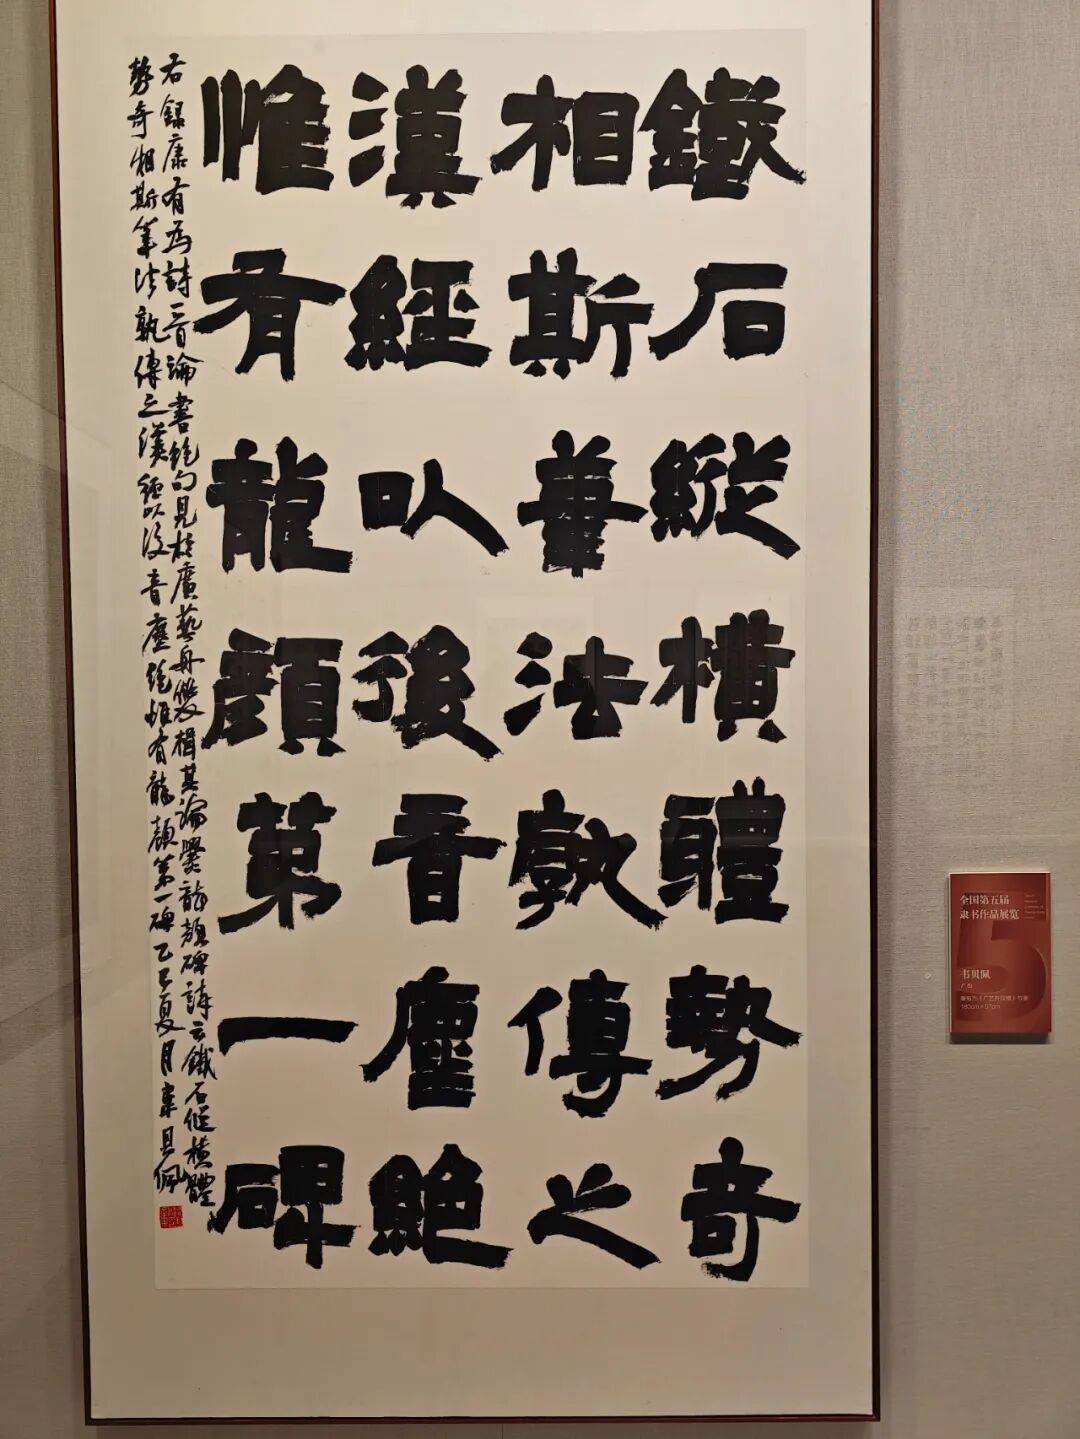 鐵石縱橫體勢奇
相斯筆法孰傳之
漢經以後音塵絕
惟有龍顏第一碑
右錄康有為詩一首論書絕句見於廣藝舟雙楫其論爨龍顏碑詩云鐵石縱橫體
勢奇相斯筆法孰傳之漢經以後音塵絕惟有龍顏第一碑乙巳夏月韋貝佩
全国第五届
隶书作品展览
韦贝佩
广西
康有为《广艺舟双楫》节录
180cm×97cm